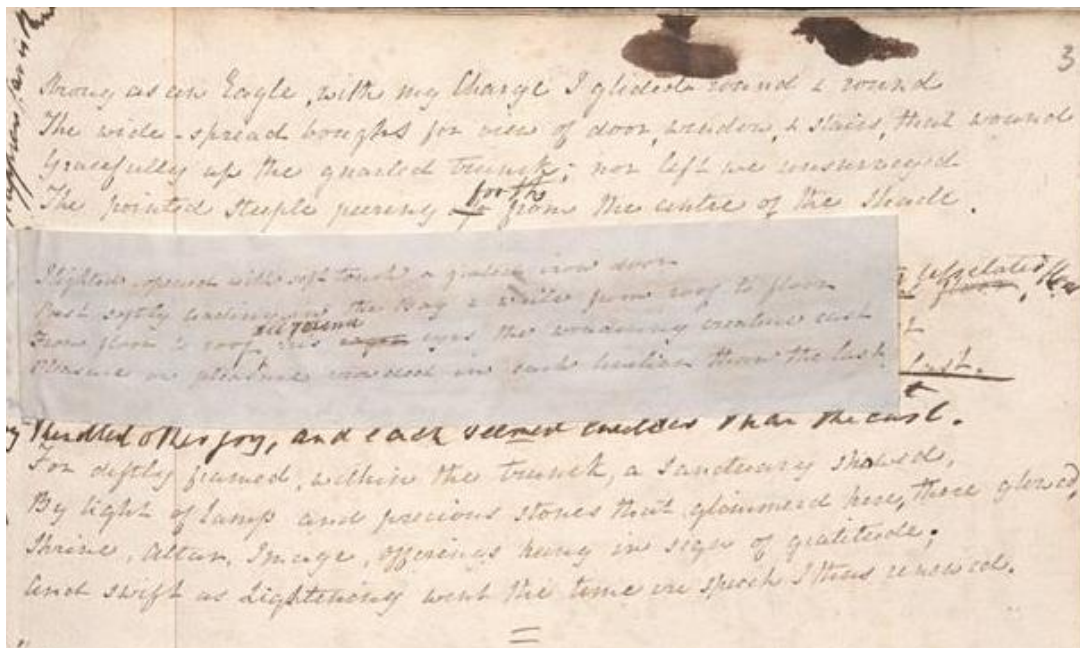 3
Strong as an Eagle, with my Charge I glided round & round
The wide-spread boughs for view of door, window, & stairs, that wound
Gracefully up the gnarled trunk; nor left we unsurveyed
The pointed steeple peering forth from the centre of the Shade.
I lighted, opened with soft touch a grated iron door
Past softly leading in the Boy & while from roof to floor
From floor to roof all round his eyes the wondering creature cast
Pleasure on pleasure crowded in each livelier than the last.
last.
thrilled other joy, and each seemed than the last.
For deftly framed, within the trunk, a sanctuary shewed,
By light of lamp and precious stones that glimmered here, there glowed,
Shrine, Altar, Image, offerings hung in sign of gratitude;
And swift as Lightening went the time ere speech I thus renewed.